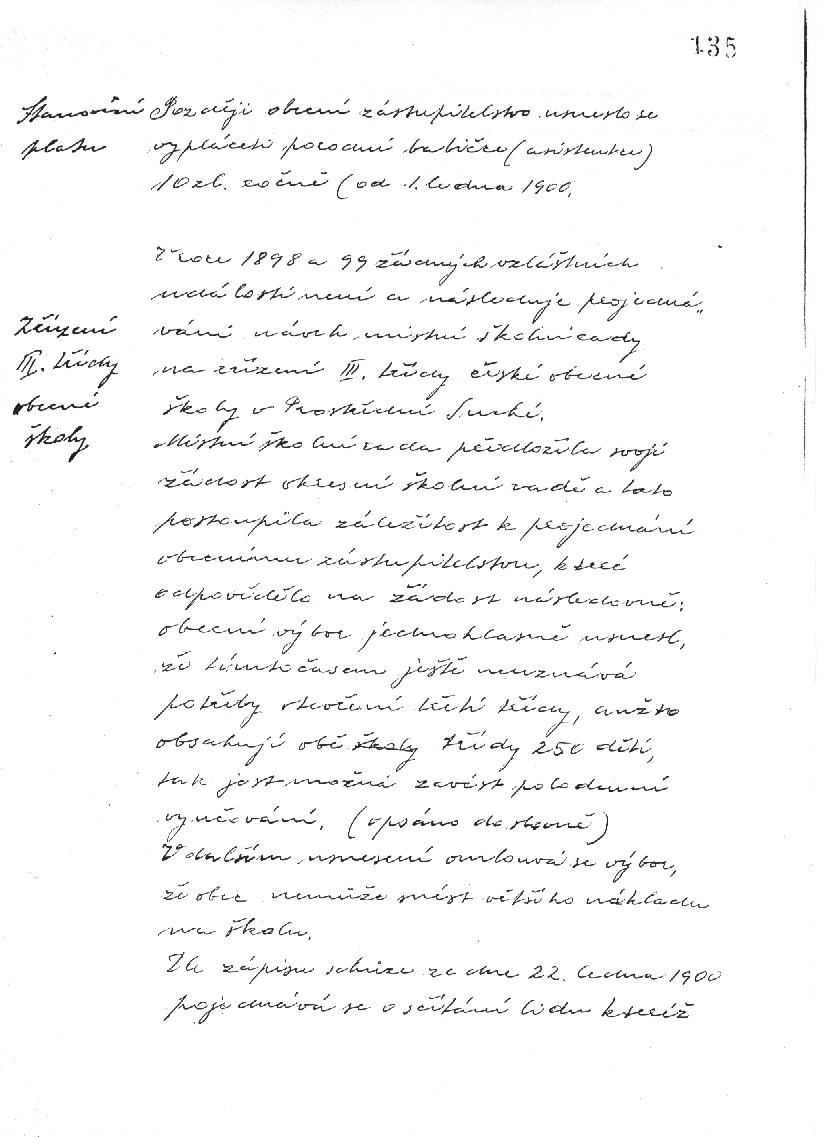 135
Stanovění
platu
Později obecní zástupitelstvo usneslo se
vypláceti porodní babičce (asistentce)
10 zl. ročně (od 1. ledna 1900.
V roce 1898 a 99 žádných vzláštních
událostí není a následuje projedná„
Zřízení
III. třídy
obecné
školy
vání návrh místní školní rady
na zřízení III. třídy české obecné
školy v Prostřední Suché.
Místní školní rada předložila svoji
žádost okresní školní radě a tato
postoupila záležitost k projednání
obecnímu zástupitelstvu, které
odpovědělo na žádost následovně:
obecní výbor jednohlasně usnesl,
že tímto časem ještě neuznává
potřeby otevření třetí třídy, anžto
obsahují obě školy třídy 250 dětí,
tak jest možná zavést polodenní
vyučování. (opsáno doslovně)
V dalším usnesení omlouvá se výbor,
že obec nemůže snést většího nákladu
na školu.
Ve zápisu schůze ze dne 22. ledna 1900
pojednává se o sčítání lidu kteréž